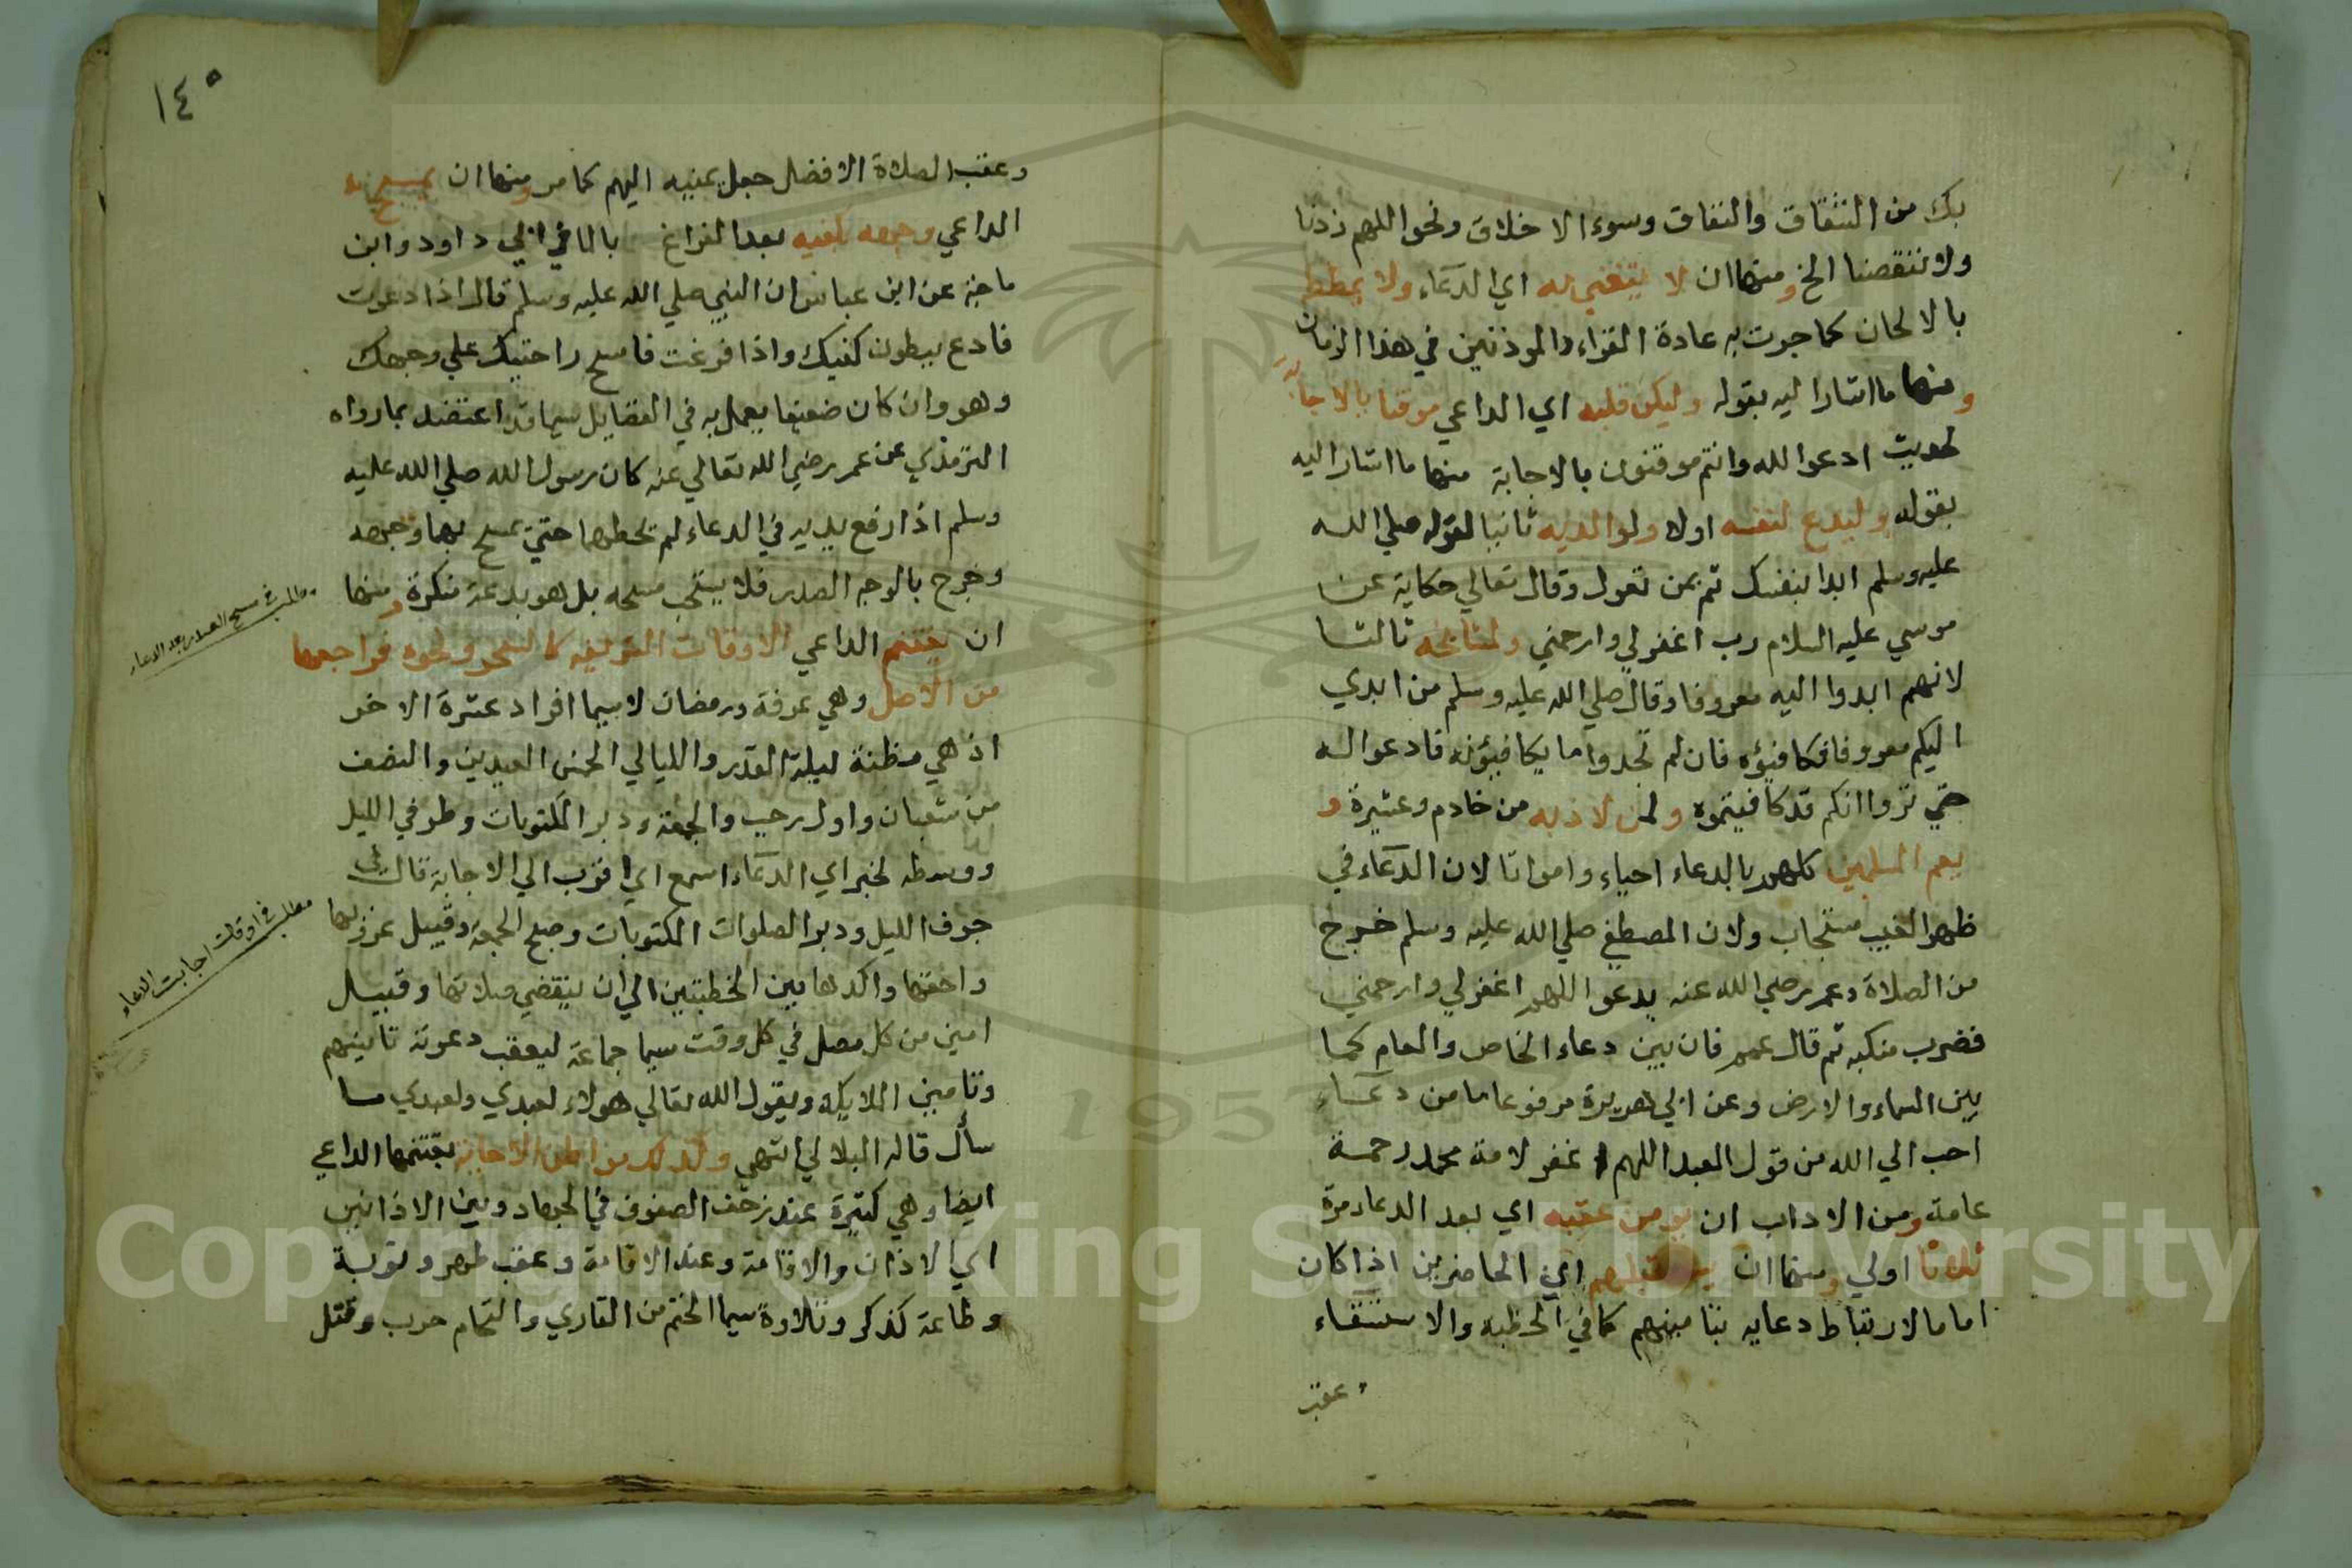 بك من الشقاق والنفاق وسوء الاخلاق ونحو اللهم زدنا
ولا تنقصنا الخ ومنها ان لا يتغنى به اي الدعاء ولا يمطط
بالالحان كما جرت به عادة القراء والموذنين في هذا الزمان
ومنها ما اشار اليه بقوله وليكن قلبه اي الداعي موقنا بالاجابة
لحديث ادعوا الله وانتم موقنون بالاجابة منها ما اشار اليه
بقوله وليدع لنفسه اولا ولوالديه ثانيا لقوله صلي الله
عليه وسلم ابدا بنفسك ثم بمن تعول وقال تعالي حكاية عن
موسي عليه السلام رب اغفر لي وارحمني ولمشايخه ثالثا
لانهم ابدوا اليه معروفا وقال صلي الله عليه وسلم من ابدي
اليكم معروفا فكافئوه فان لم تجدوا ما يكافيؤنه فادعوا له
حتي تروا انكم قد كافيتموه ولمن لاذ به من خادم وعشيرة و
يعم المسلمين كلهم بالدعاء احياء وامواتا لان الدعاء في
ظهر الغيب مستجاب ولان المصطفي صلي الله عليه وسلم خرج
من الصلاة وعمر رضي الله عنه يدعو اللهم اغفر لي وارحمني
فضرب منكبه ثم قال عمم فان بين دعاء الخاص والعام كما
بين السماء والارض وعن ابي هريرة مرفوعا ما من دعاء
احب الي الله من قول العبد اللهم اغفر لامة محمد رحمة
عامة ومن الاداب ان يومن عقبه اي بعد الدعاء مرة
ثلاثا اولي ومنها ان اي الحاضرين اذا كان
اماما لارتباط دعايه بتامينهم كما في الخطبه والاستسقاء
عقب
١٤٥
وعقب الصلاة الافضل جعل يمينه اليهم كما مر ومنها ان يمسح به
الداعي وجهه بكفيه بعد الفراغ ابي داود وابن
ماجة عن ابن عباس ان النبي صلي الله عليه وسلم قال اذا دعوت
فادع ببطون كفيك واذا فرغت فامسح راحتيك علي وجهك
وهو وان كان ضعيفا يعمل به في الفضايل سيما قد اعتضد بما رواه
الترمذي عن عمر رضي الله تعالي عنه كان رسول الله صلي الله عليه
وسلم اذا رفع يديه في الدعاء لم يحطهما حتي يمسح بهما وجهه
وخرج بالوجه الصدر فلا يستحب مسحه بل هو بدعة منكرة ومنها
ان يغتنم الداعي الاوقات الشريفه كالسحر ونحوه فراجعها
من الاصل وهي عرفة ورمضان لاسيما افراد عشرة الاخر
اذ هي مظنة ليلة القدر والليالي الخمس العيدين والنصف
من شعبان واول رجب والجمعة ودبر المكتوبات وطرفي الليل
ووسطه لخبر اي الدعاء اسمع اي اقرب الي الاجابة قال في
جوف الليل ودبر الصلوات المكتوبات وصبح الجمعة وقبيل غروبها
واحقها واكدها بين الخطبتين الي ان ينقضي صلاتها وقبيل
امين من كل مصل في كل وقت سيما جماعة ليعقب دعوته تامينهم
وتامين الملايكة ويقول الله تعالي هولاء لعبدي ولعبدي ما
سأل قاله البلالي انتهي وكذلك مواطن الاجابة يغتنمها الداعي
ايضا وهي كثيرة عند زحف الصفوف في الجهاد وبين الاذانين
اي الاذان والاقامة وعند الاقامة وعقب طهر وتوبة
وطاعة كذكر وتلاوة سيما الختم من القاري والتحام حرب وقتل
مطلب في مسح الصدر بعد الدعاء
مطلب في اوقات اجابت الدعاء
1957
Copyright © King Saud University